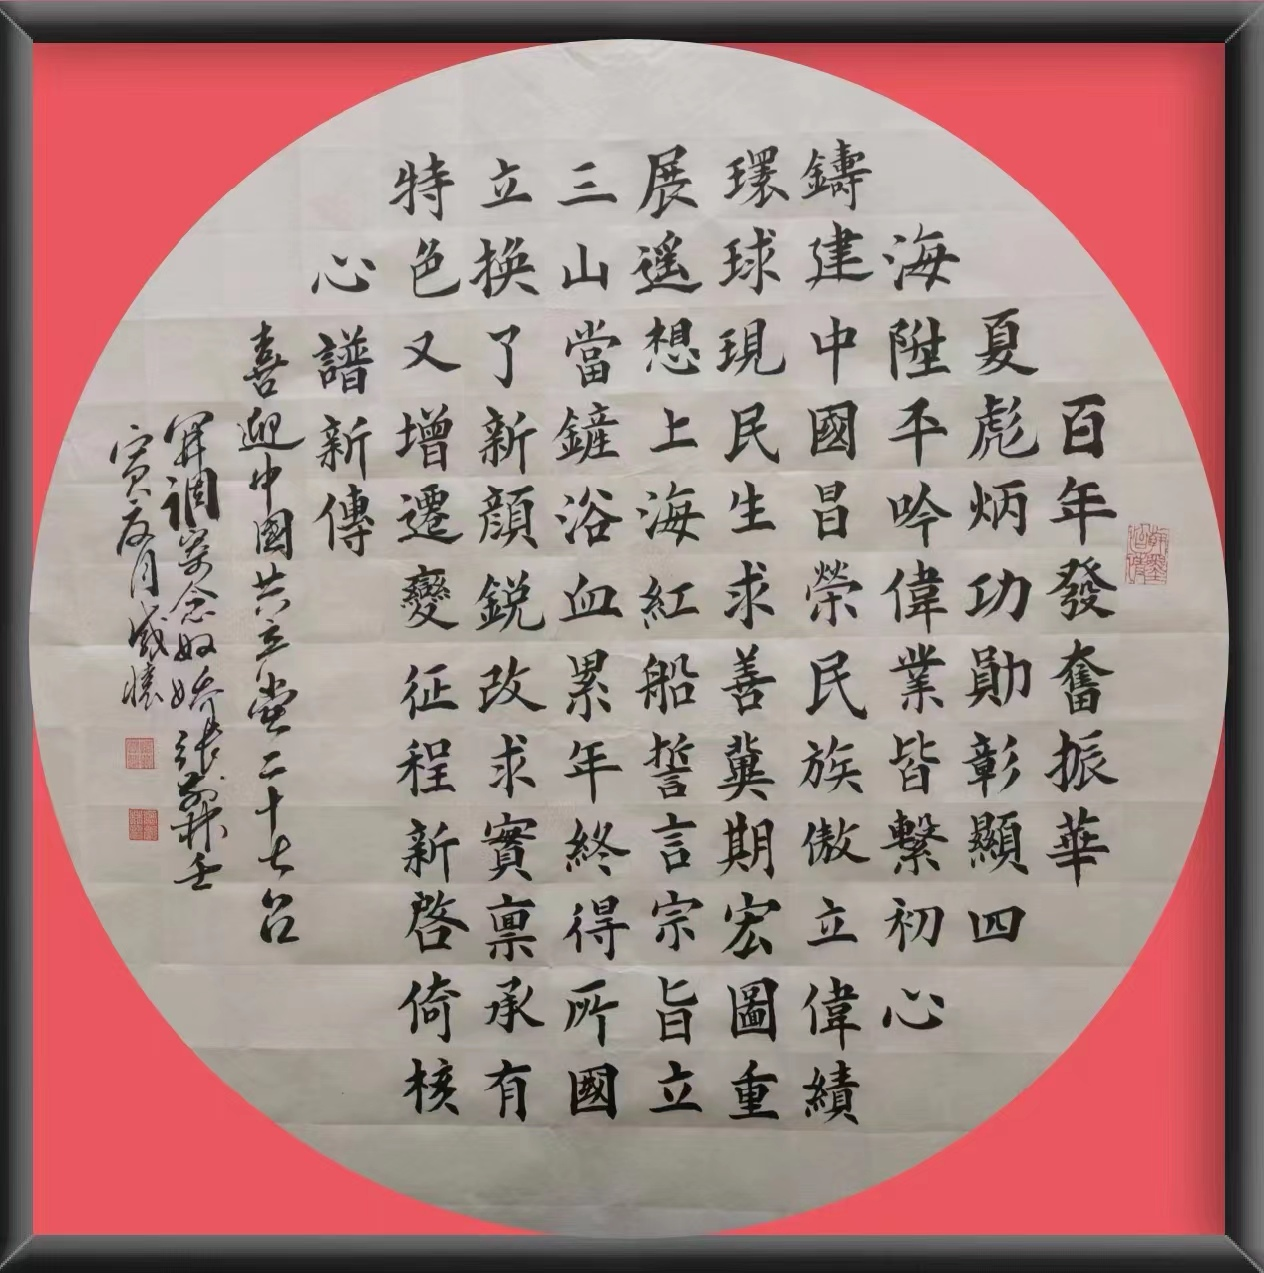 百年發奮振華
夏彪炳功勛彰顯四
海陞平吟偉業皆繫初心
鑄建中國昌榮民族傲立偉績
環球現民生求善冀期宏圖重
展遥想上海紅船誓言宗旨立
三山當鏟浴血累年終得所國
立換了新顔鋭改求實禀承有
特色又增遷變征程新啓倚核
心譜新傳
喜迎中國共産黨二十大召
開調寄念奴嬌張壬
寅友月感懷